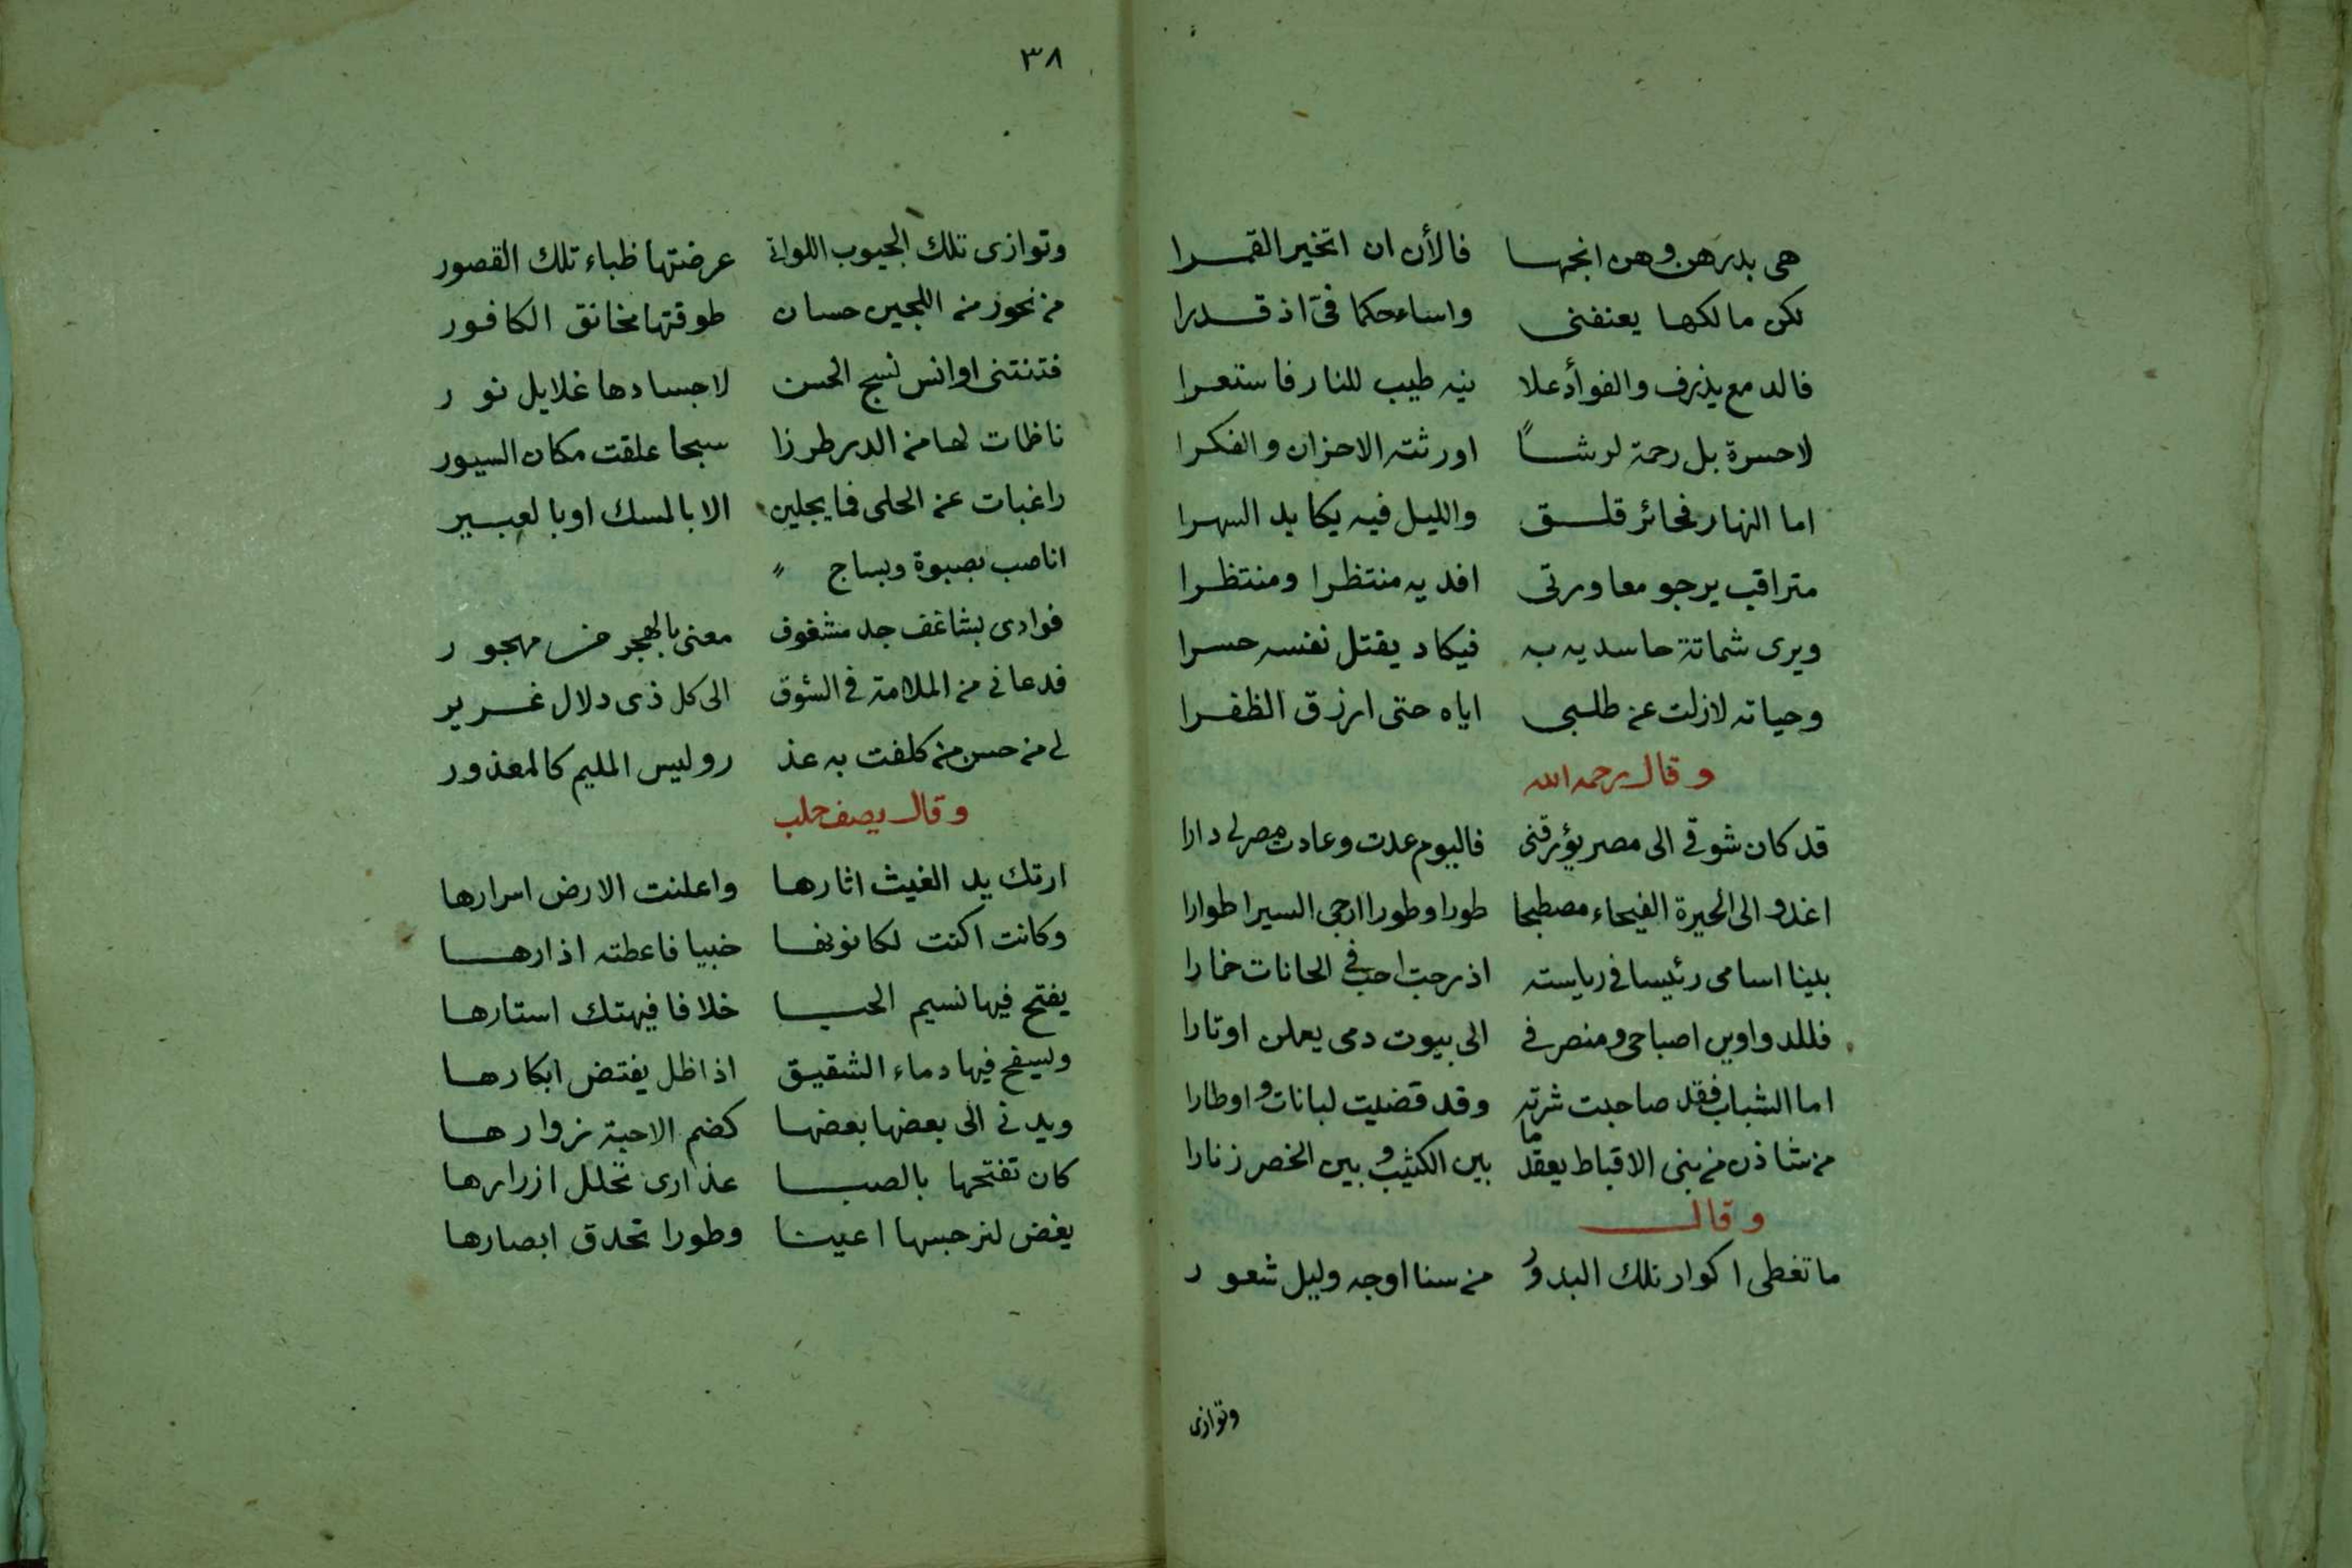 هى بدرهن وهن انجمها فالأن ان اتخير القمرا
لكن مالكها يعنفنى واساء حكما فىّ اذ قدرا
فالدمع يذرف والفوأد علا نيه طيب للنار فاستعرا
لا حسرة بل رحمة لرشاً اورثته الاحزان والفكرا
اما النهار فحائر قلق والليل فيه يكابد السهرا
متراقب يرجو معاورتى افديه منتظرا ومنتظرا
ويرى شماتة حاسديه به فيكاد يقتل نفسه حسرا
وحياته لازلت عن طلبى اياه حتى ارزق الظفرا
وقال رحمه الله
قد كان شوقى الى مصر يؤرقنى فاليوم عدت وعادت مصر لى دارا
اغدو الى الحيرة الفيحاء مصطبحا طورا وطورا ارجى السير اطوارا
بينا اسامى رئيسا فى رياسته اذ رحت احب فى الحانات خمارا
فللدواوين اصباحى ومنصرفى الى بيوت دمى يعلن اوتارا
اما الشباب فقد صاحبت شرته وقد قضيت لبانات واوطارا
من شاذن من بنى الاقباط يعقد ما بين الكثيب وبين الخصر زنارا
وقال
ما تغطى اكوار تلك البدور من سنا اوجه وليل شعور
وتوازى
٣٨
وتوازى تلك الجيوب اللواتى عرضتها ظباء تلك القصور
من نحور من اللجين حسان طوقتها مخانق الكافور
فتنتنى اوانس نسج الحسن لاجسادها غلايل نور
ناظمات لها من الدر طرزا سبحا علقت مكان السيور
راغبات عن الحلى فما يجلين الا بالمسك او بالعبير
انا صب بصبوة وبساج
فوادى بشاغف جد مشغوف معنى بالهجر من مهجور
فدعانى من الملامة فى الشوق الى كل ذى دلال غرير
لى من حسن من كلفت به عذ ر وليس المليم كالمعذور
وقال يصف حلب
ارتك يد الغيث اثارها واعلنت الارض اسرارها
وكانت اكنت لكانونها خبيا فاعطته اذارها
يفتح فيها نسيم الحيا خلافا فيهتك استارها
ويسفح فيها دماء الشقيق اذا ظل يفتض ابكارها
ويدنى الى بعضها بعضها كضم الاحبة زوارها
كان تفتحها بالصبا عذارى تحلل ازرارها
يغض لنرجسها اعينا وطورا تحدق ابصارها